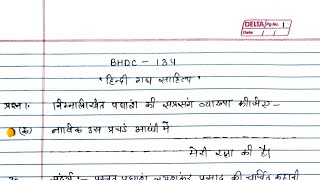 DELTA Pg No. 1
Date / /
BHDC - 134
'हिन्दी गद्य साहित्य'
प्रश्न 1. निम्नलिखित गद्यांशों की सप्रसंग व्याख्या कीजिए-
(क) नाविक इस प्रचंड आंधी में
मेरी रक्षा की है।
संदर्भ :- प्रस्तुत गद्यांश जयशंकर प्रसाद की चर्चित कहानी